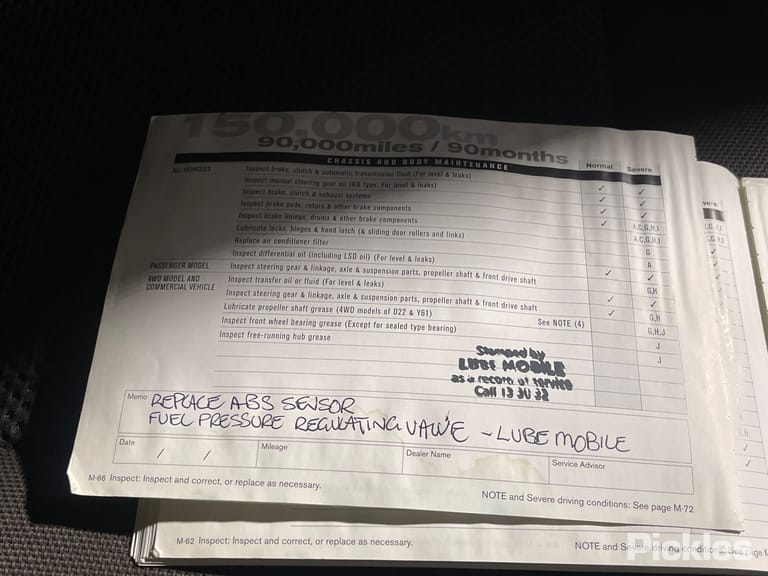 150,000km
90,000miles / 90months
CHASSIS AND BODY MAINTENANCE Normal Severe
ALL VEHICLES Inspect brake, clutch & automatic transmission fluid (For level & leaks) ✓ ✓
Inspect manual steering gear oil (RB type. For level & leaks) ✓ ✓
Inspect brake, clutch & exhaust systems ✓ ✓
Inspect brake pads, rotors & other brake components ✓ A,C,G,H,I
Inspect brake linings, drums & other brake components A,C,G,H,I
Lubricate locks, hinges & hood latch (& sliding door rollers and links) G
Replace air conditioner filter A
Inspect differential oil (including LSD oil) (For level & leaks) ✓ ✓
PASSENGER MODEL Inspect steering gear & linkage, axle & suspension parts, propeller shaft & front drive shaft G,H
4WD MODEL AND COMMERCIAL VEHICLE Inspect transfer oil or fluid (For level & leaks) ✓ ✓
Inspect steering gear & linkage, axle & suspension parts, propeller shaft & front drive shaft ✓ G,H
Lubricate propeller shaft grease (4WD models of D22 & Y61) See NOTE (4) G,H,J
Inspect front wheel bearing grease (Except for sealed type bearing) J
Inspect free-running hub grease J
Stamped by
LUBE MOBILE
as a record of service
Call 13 30 32
Memo REPLACE ABS SENSOR
FUEL PRESSURE REGULATING VALVE - LUBE MOBILE
Date / / Mileage Dealer Name Service Advisor
M-66 Inspect: Inspect and correct, or replace as necessary.
NOTE and Severe driving conditions: See page M-72
M-62 Inspect: Inspect and correct, or replace as necessary.
NOTE and Severe driving conditions: See page M
Pickles